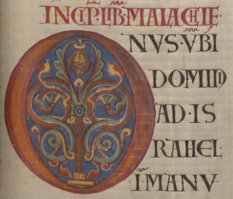 INCP·LIB·MALACHIE·
ONVS·VBI
DOMINI
AD·IS
RAHEL
ĪMANV